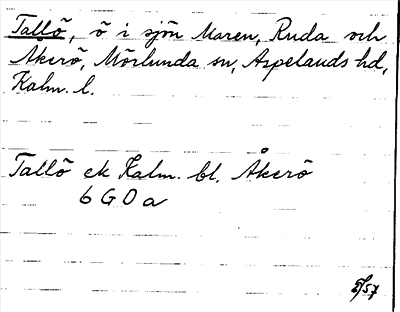 Tallö, ö i sjön Maren, Ruda och
Åkerö, Mörlunda sn, Aspelands hd,
Kalm. l.
Tallö ek Kalm. bl. Åkerö
6 G 0 a